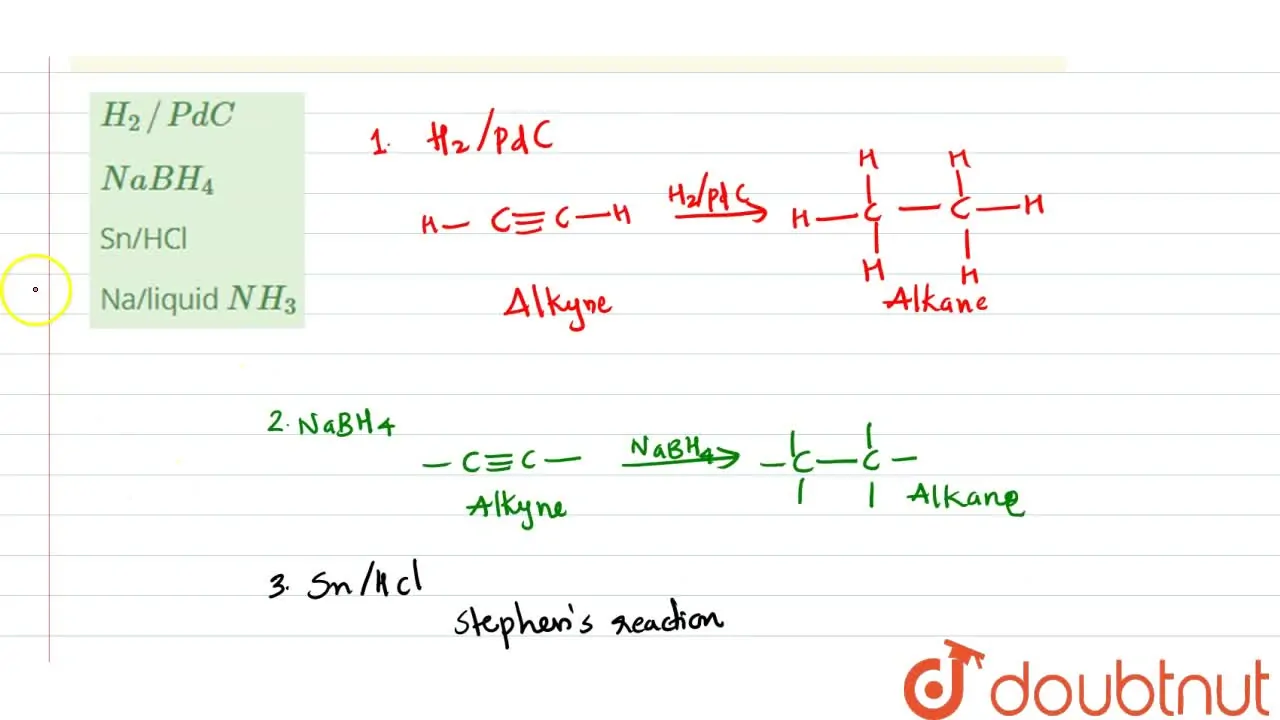 H₂ / PdC
NaBH₄
Sn/HCl
Na/liquid NH₃
1. H₂/PdC
H — C≡C — H  H₂/PdC →
H H
H — C — C — H
H H
Alkyne  Alkane
2. NaBH4
— C≡C —  NaBH4 →  — C — C —
Alkyne  Alkane
3. Sn/HCl
Stephen's reaction
doubtnut